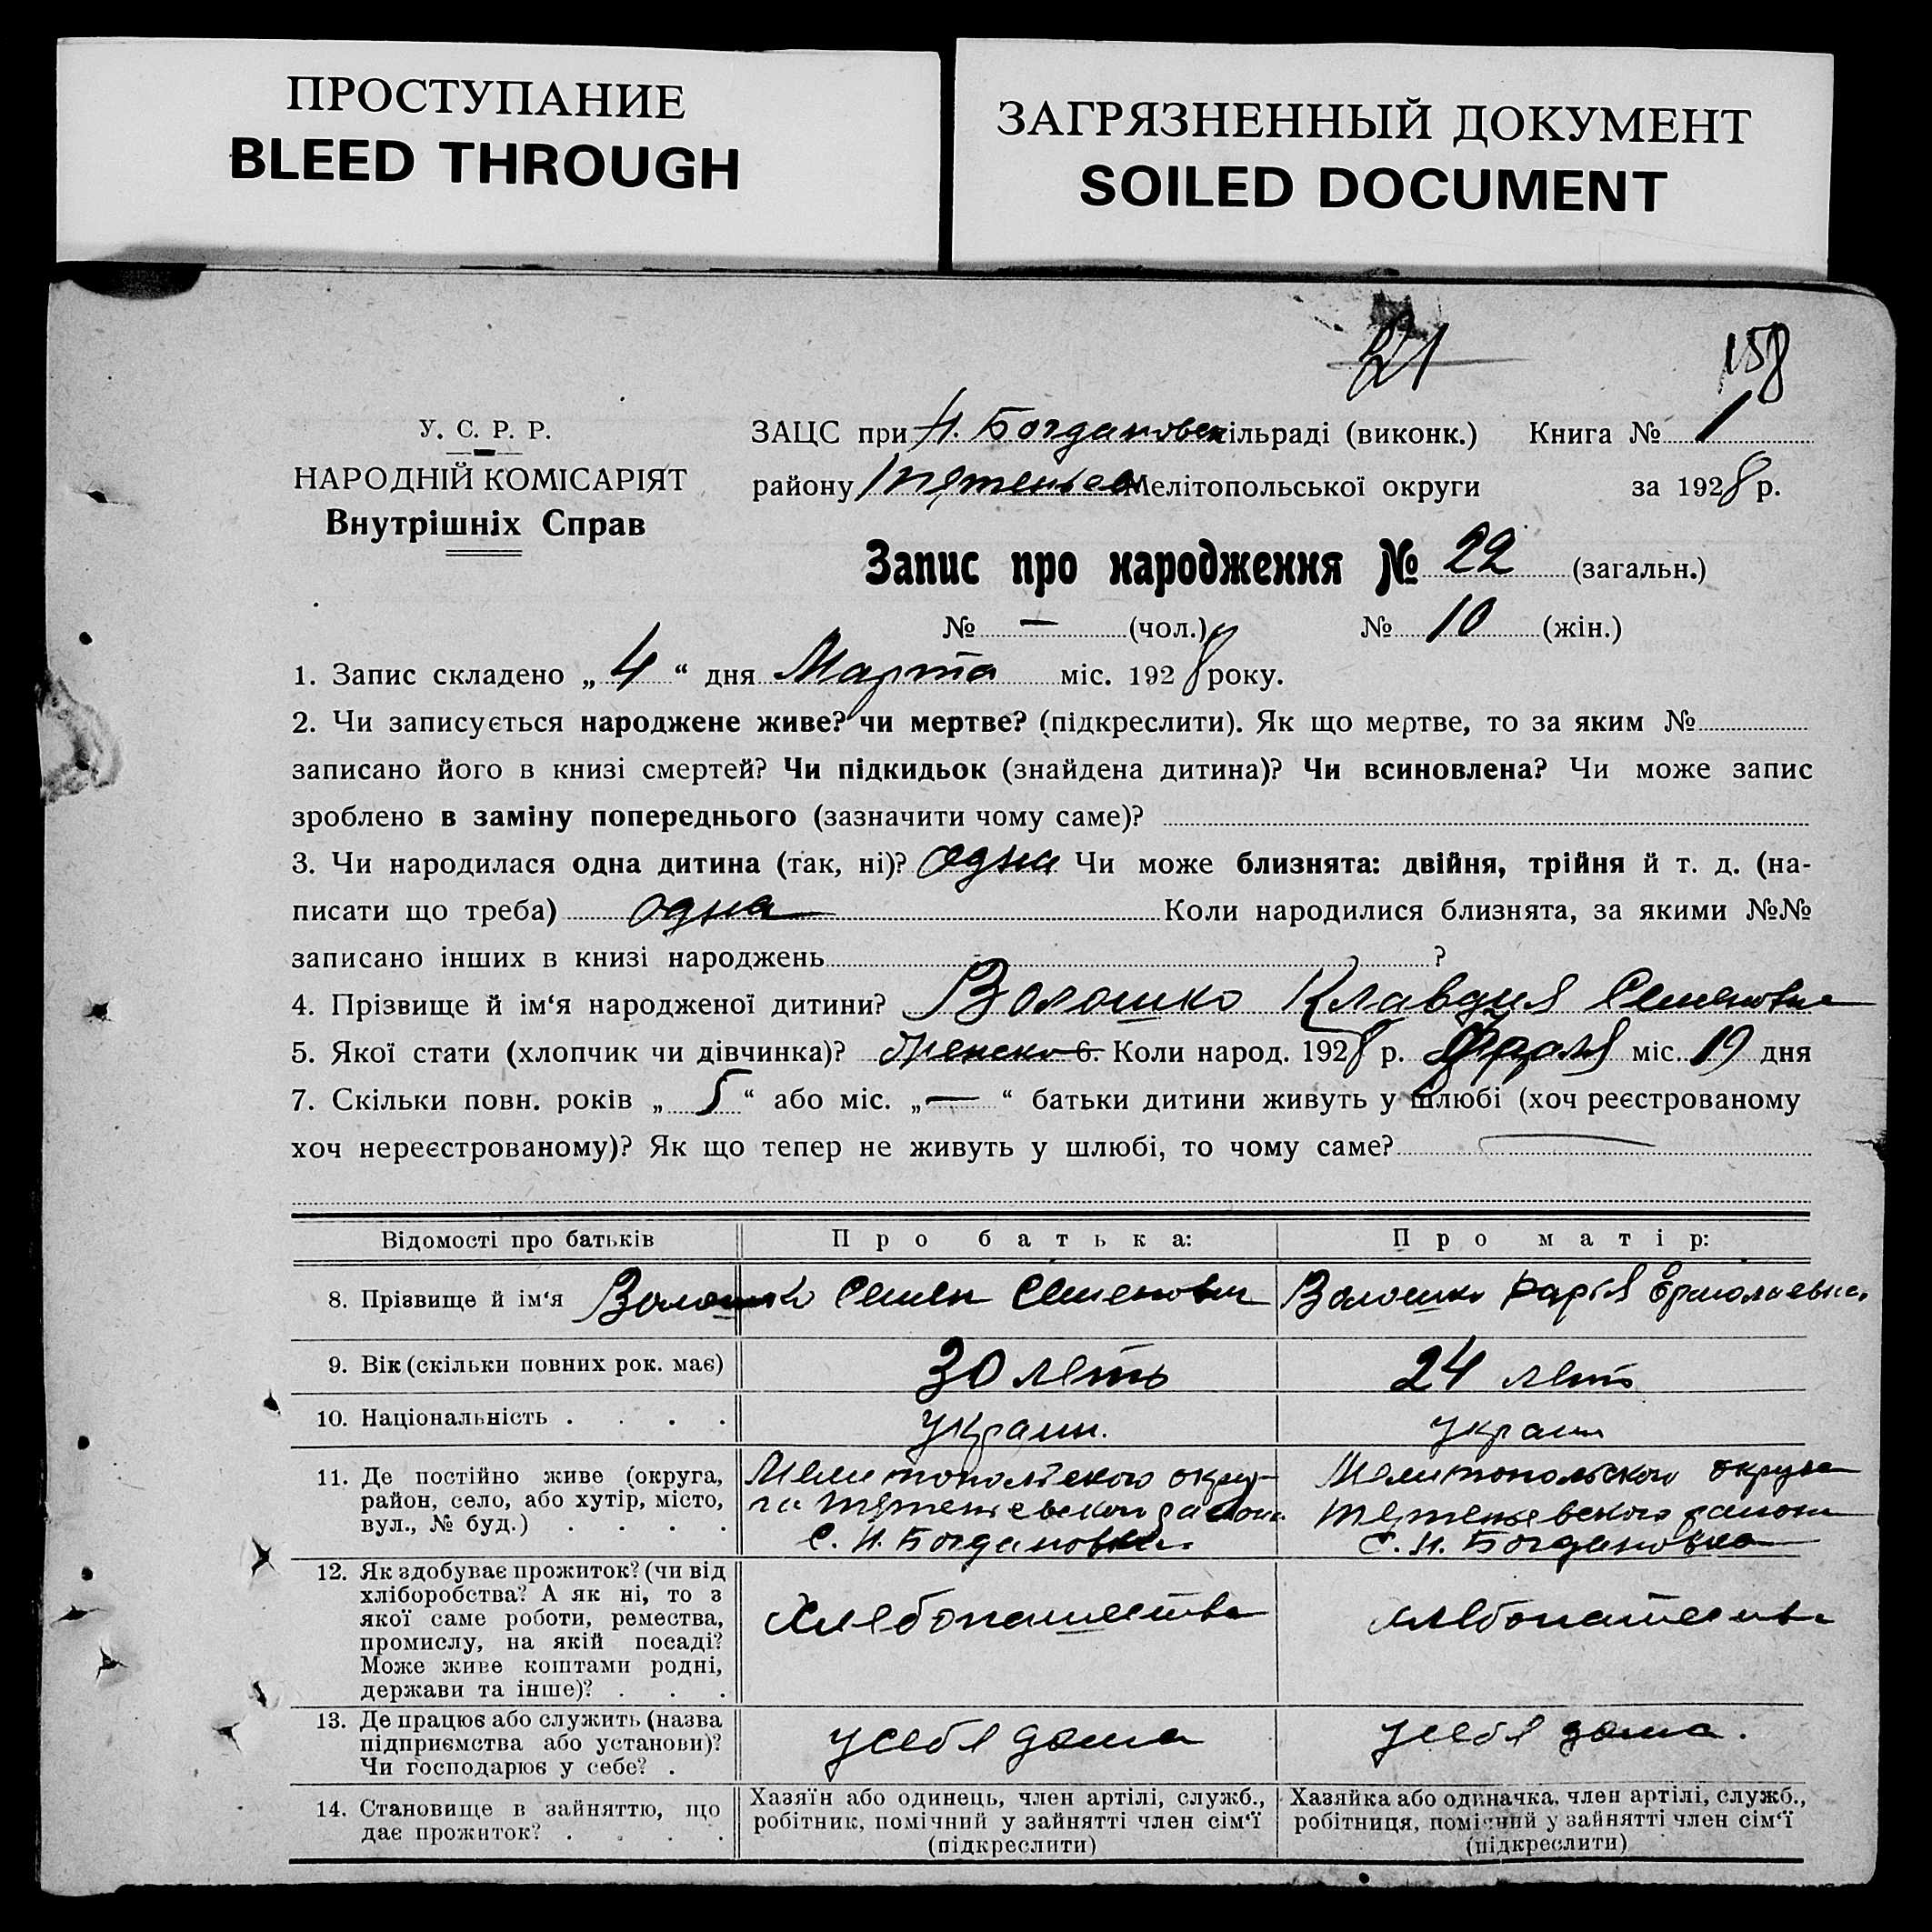 ПРОСТУПАНИЕ
BLEED THROUGH
ЗАГРЯЗНЕННЫЙ ДОКУМЕНТ
SOILED DOCUMENT
21
158
У. С. Р. Р.
НАРОДНІЙ КОМІСАРІЯТ
Внутрішніх Справ
ЗАЦС при Н. Богдановск сільраді (виконк.) Книга № 1
району Мелітопольської округи за 1928 р.
Запис про народження № 22 (загальн.)
№ — (чол.) № 10 (жін.)
1. Запис складено „ 4 “ дня Марта міс. 1928 року.
2. Чи записується народжене живе? чи мертве? (підкреслити). Як що мертве, то за яким №
записано його в книзі смертей? Чи підкидьок (знайдена дитина)? Чи всиновлена? Чи може запис
зроблено в заміну попереднього (зазначити чому саме)?
3. Чи народилася одна дитина (так, ні)? одна Чи може близнята: двійня, трійня й т. д. (на-
писати що треба) одна Коли народилися близнята, за якими №№
записано інших в книзі народжень ?
4. Прізвище й ім‘я народженої дитини? Волошко Клавдия Семеновна
5. Якої стати (хлопчик чи дівчинка)? женско 6. Коли народ. 1928 р. міс. 19 дня
7. Скільки повн. років „ 5 “ або міс. „ — “ батьки дитини живуть у шлюбі (хоч реєстрованому
хоч нереєстрованому)? Як що тепер не живуть у шлюбі, то чому саме? —
Відомості про батьків Про батька: Про матір:
8. Прізвище й ім‘я Волошко Семен Семенович Волошко Дарія Ермолаевна
9. Вік (скільки повних рок. має) 30 летъ 24 летъ
10. Національність . . . . украин. украин
11. Де постійно живе (округа,
район, село, або хутір, місто,
вул., № буд.) . . . .
Мелитопольского окру-
га района
С. Н. Богдановка
Мелитопольского округа
района
С. Н. Богдановка
12. Як здобуває прожиток? (чи від
хліборобства? А як ні, то з
якої саме роботи, ремества,
промислу, на якій посаді?
Може живе коштами родні,
держави та інше)? . . .
Хлебопашества
хлебопашества
13. Де працює або служить (назва
підприємства або установи)?
Чи господарює у себе? .
у себя дома
у себя дома.
14. Становище в зайняттю, що
дає прожиток? . . . .
Хазяїн або одинець, член артілі, служб.,
робітник, помічний у зайнятті член сім‘ї
(підкреслити)
Хазяйка або одиначка, член артілі, служб.,
робітниця, помічний у зайнятті член сім‘ї
(підкреслити)